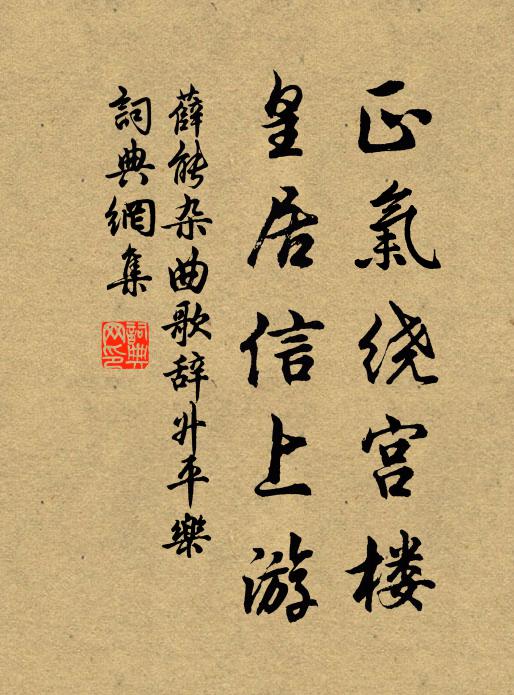 正氣绕宫楼
皇居信上游
薛能杂曲歌辞升平樂
詞典網集
詞典网印